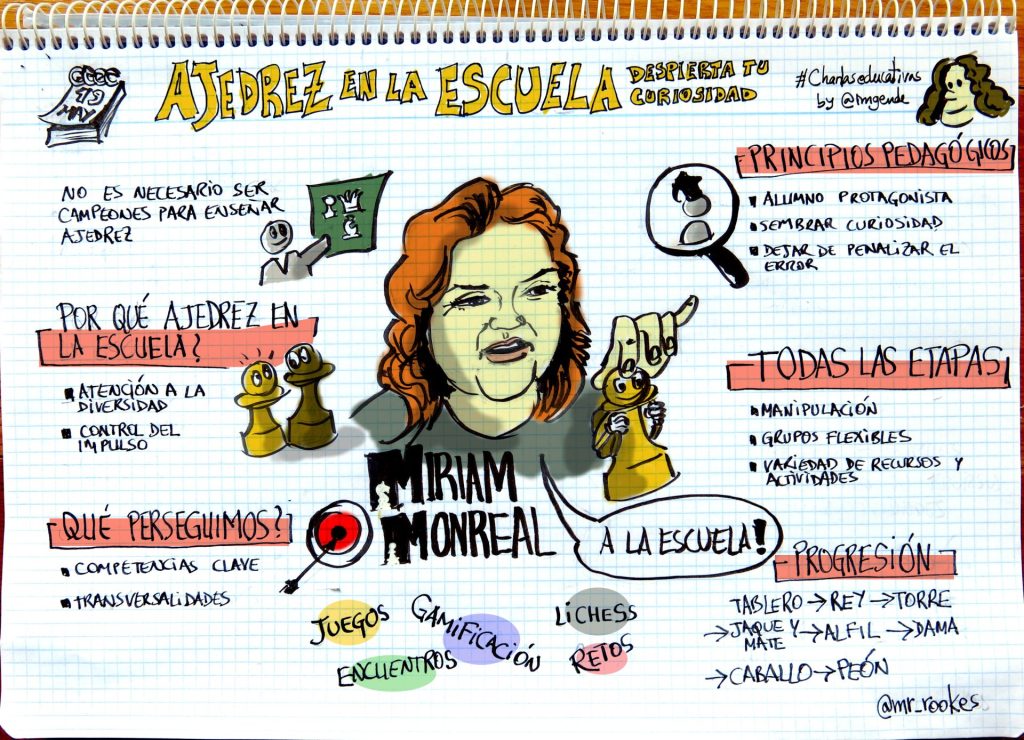 19
MAY
AJEDREZ EN LA ESCUELA
DESPIERTA TU
CURIOSIDAD
#Charlaseducativas
by @imgende
NO ES NECESARIO SER
CAMPEONES PARA ENSEÑAR
AJEDREZ
POR QUÉ AJEDREZ EN
LA ESCUELA?
ATENCIÓN A LA
DIVERSIDAD
CONTROL DEL
IMPULSO
QUÉ PERSEGUIMOS?
COMPETENCIAS CLAVE
TRANSVERSALIDADES
MIRIAM
MONREAL
A LA ESCUELA!
JUEGOS
GAMIFICACIÓN
LICHESS
ENCUENTROS
RETOS
PRINCIPIOS PEDAGÓGICOS
ALUMNO PROTAGONISTA
SEMBRAR CURIOSIDAD
DEJAR DE PENALIZAR EL
ERROR
TODAS LAS ETAPAS
MANIPULACIÓN
GRUPOS FLEXIBLES
VARIEDAD DE RECURSOS Y
ACTIVIDADES
PROGRESIÓN
TABLERO → REY → TORRE
→ JAQUE Y
MATE → ALFIL → DAMA
→ CABALLO → PEÓN
@mr_rookes